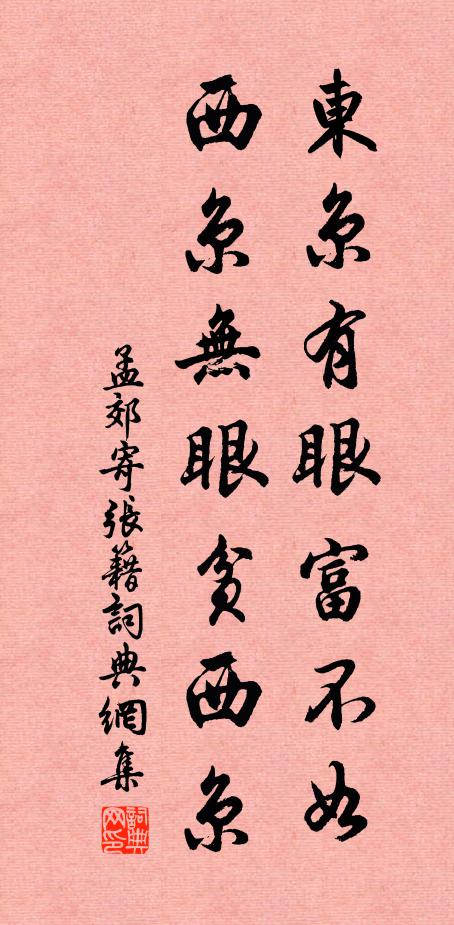 東京有眼富不如
西京無眼貧西京
孟郊寄張籍詞典網集
詞典网印